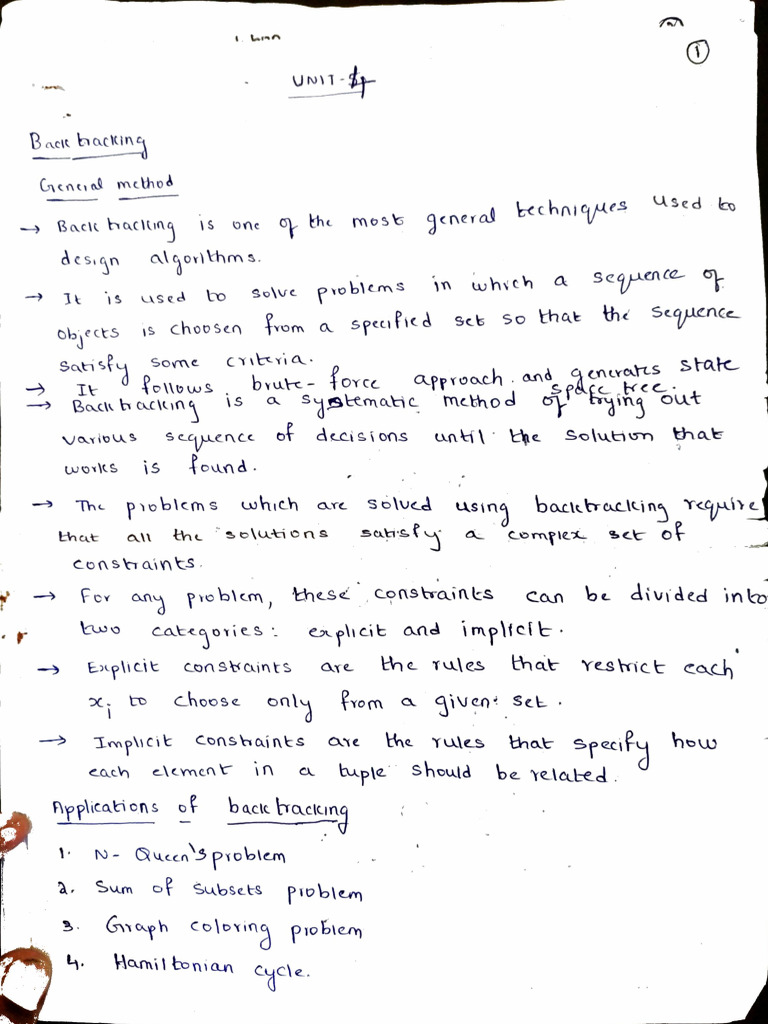 1
UNIT-
Backtracking
General method
→ Backtracking is one of the most general techniques used to
design algorithms.
→ It is used to solve problems in which a sequence of
objects is choosen from a specified set so that the sequence
satisfy some criteria.
→ It follows brute-force approach and generates state
space tree.
→ Backtracking is a systematic method of trying out
various sequence of decisions until the solution that
works is found.
→ The problems which are solved using backtracking require
that all the solutions satisfy a complex set of
constraints.
→ For any problem, these constraints can be divided into
two categories: explicit and implicit.
→ Explicit constraints are the rules that restrict each
xi to choose only from a given set.
→ Implicit constraints are the rules that specify how
each element in a tuple should be related.
Applications of backtracking
1. N-Queen's problem
2. Sum of subsets problem
3. Graph coloring problem
4. Hamiltonian cycle.